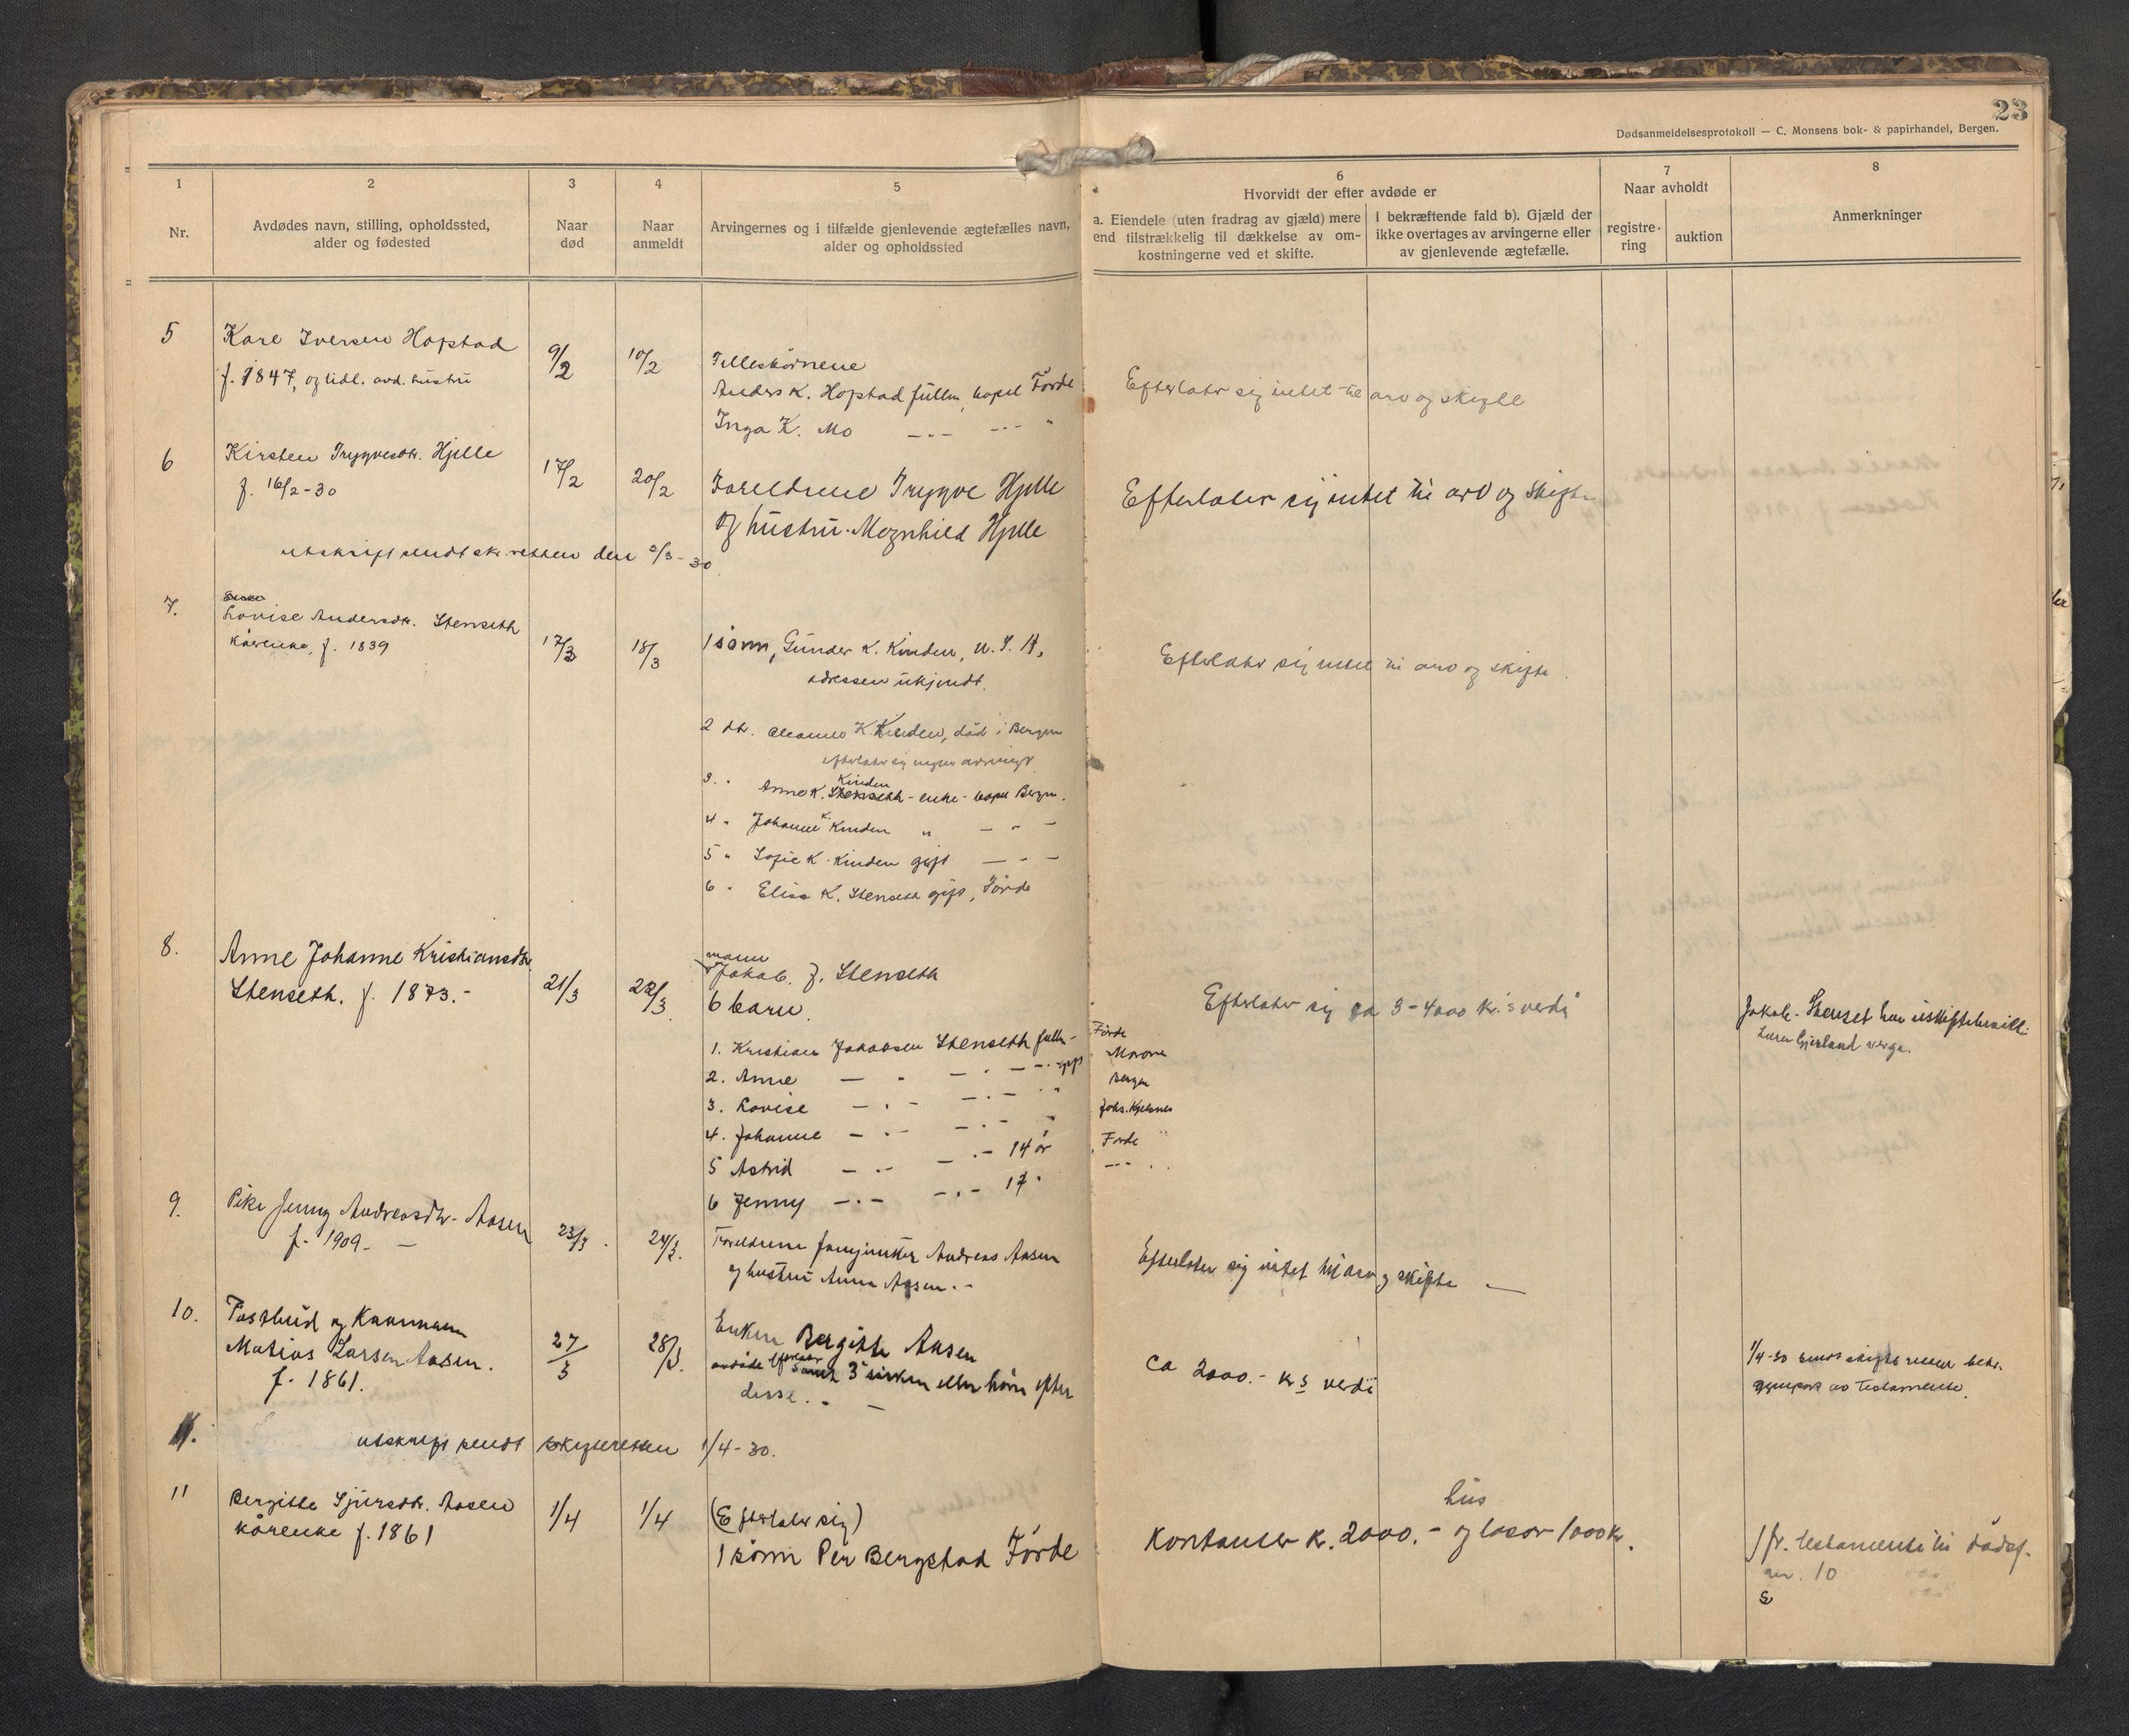 23
Dødsanmeldelsesprotokoll — C. Monsens bok- & papirhandel, Bergen.
1
2
3
4
5
6
7
8
Nr.
Avdødes navn, stilling, opholdssted,
alder og fødested
Naar
død
Naar
anmeldt
Arvingernes og i tilfælde gjenlevende ægtefælles navn,
alder og opholdssted
Hvorvidt der efter avdøde er
a. Eiendele (uten fradrag av gjæld) mere
end tilstrækkelig til dækkelse av om-
kostningerne ved et skifte.
I bekræftende fald b). Gjæld der
ikke overtages av arvingerne eller
av gjenlevende ægtefælle.
Naar avholdt
registre-
ring
auktion
Anmerkninger
5
Kare Iversen Hopstad
f. 1847, og tidl. avd. hustru
9/2
10/2
Fellesbørnene
Anders K. Hopstad fullm, bopel Förde
Inga K. Mo —"— —"— "
Efterlater sig intet til arv og skifte
6
Kirsten Trygvesdtr. Hjelle
f. 16/2-30
17/2
20/2
Foreldrene Trygve Hjelle
og hustru Magnhild Hjelle
Efterlater sig intet til arv og skifte
utskrift sendt sk. retten den 3/3-30
7.
Lovise Andersdtr. Stenseth
kårenke, f. 1839
17/3
18/3
1 sönn, Gunder K. Kinden, U. S. A,
adressen ukjendt.
Efterlater sig intet til arv og skifte.
2 dtr. K. Kinden, död i Bergen
efterlater sig ingen arvinger
3. " Kinden
Anne K. Stenseth - enke - bopel Bergen.
4 " Johanne K. Kinden " — " —
5 " Sofie K. Kinden gift — " —
6 " Elisa K. Stenseth gift, Förde
8.
Anne Johanne Kristiansdtr.
Stenseth. f. 1873.-
21/3
22/3
mann
Jakob. J. Stenseth
6 barn.
1. Kristian Jakobsen Stenseth fullm- Förde
2. Anne — " — " — " gift
3. Lovise — " — — " — " Bergen
4. Johanne — " — — " — " Johs. Kjelsnes
5 Astrid — " — — " — 14 år Förde
6 Jenny — " — — " — 17 " —"—
Efterlater sig ca 3-4000 kr.s verdi
Jakob. Stenset har
verge.
9.
Pike Jenny Andreasdtr. Aasen
f. 1909. —
23/3.
24/3.
Foreldrene Andreas Aasen
og hustru Anna Aasen. -
Efterlater sig intet til arv og skifte —
10.
Postbud og Kaarmann
Matias Larsen Aasen.
f. 1861.
27/3
28/3.
Enken Bergitte Aasen
avdøde efterlater
samt 3 søsken eller børn efter
disse. - —
Ca 2000.- krs verdi
1/4-30 sendt skifteretten
gjenpart av Testamente.
11.
utskrift sendt skifteretten 1/4-30.
11
Bergitte Sjursdtr. Aasen
kårenke f. 1861
1/4
1/4
(Efterlater sig)
1 sönn Per Bergstad Förde
hus
Kontanter kr. 2000.- og løsør 1000 kr.
Jfr. testamente til dödsf.
nr. 10